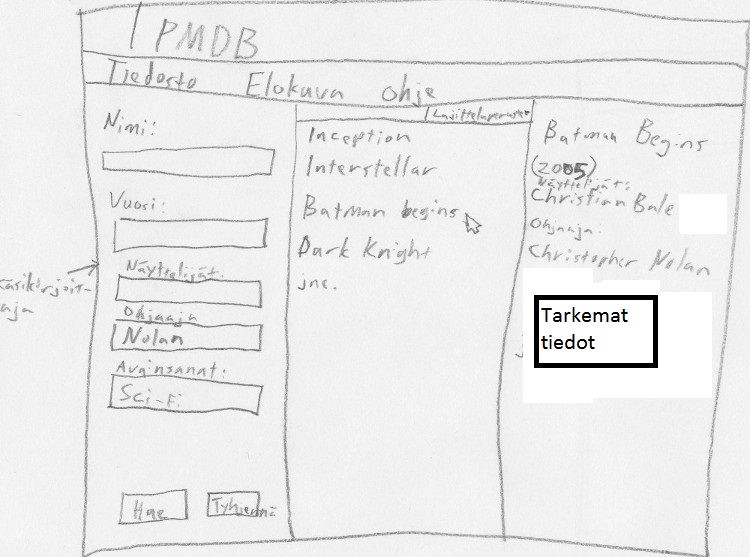 PMDB
Tiedosto Elokuva Ohje
Nimi:
Vuosi:
Näyttelijät:
Ohjaaja
Nolan
Avainsanat:
Sci-Fi
Hae
Tyhjennä
Käsikirjoit-
taja
Lajitteluperuste
Inception
Interstellar
Batman begins
Dark Knight
jne.
Batman Begins
(2005)
Näyttelijät:
Christian Bale
Ohjaaja:
Christopher Nolan
Tarkemat
tiedot